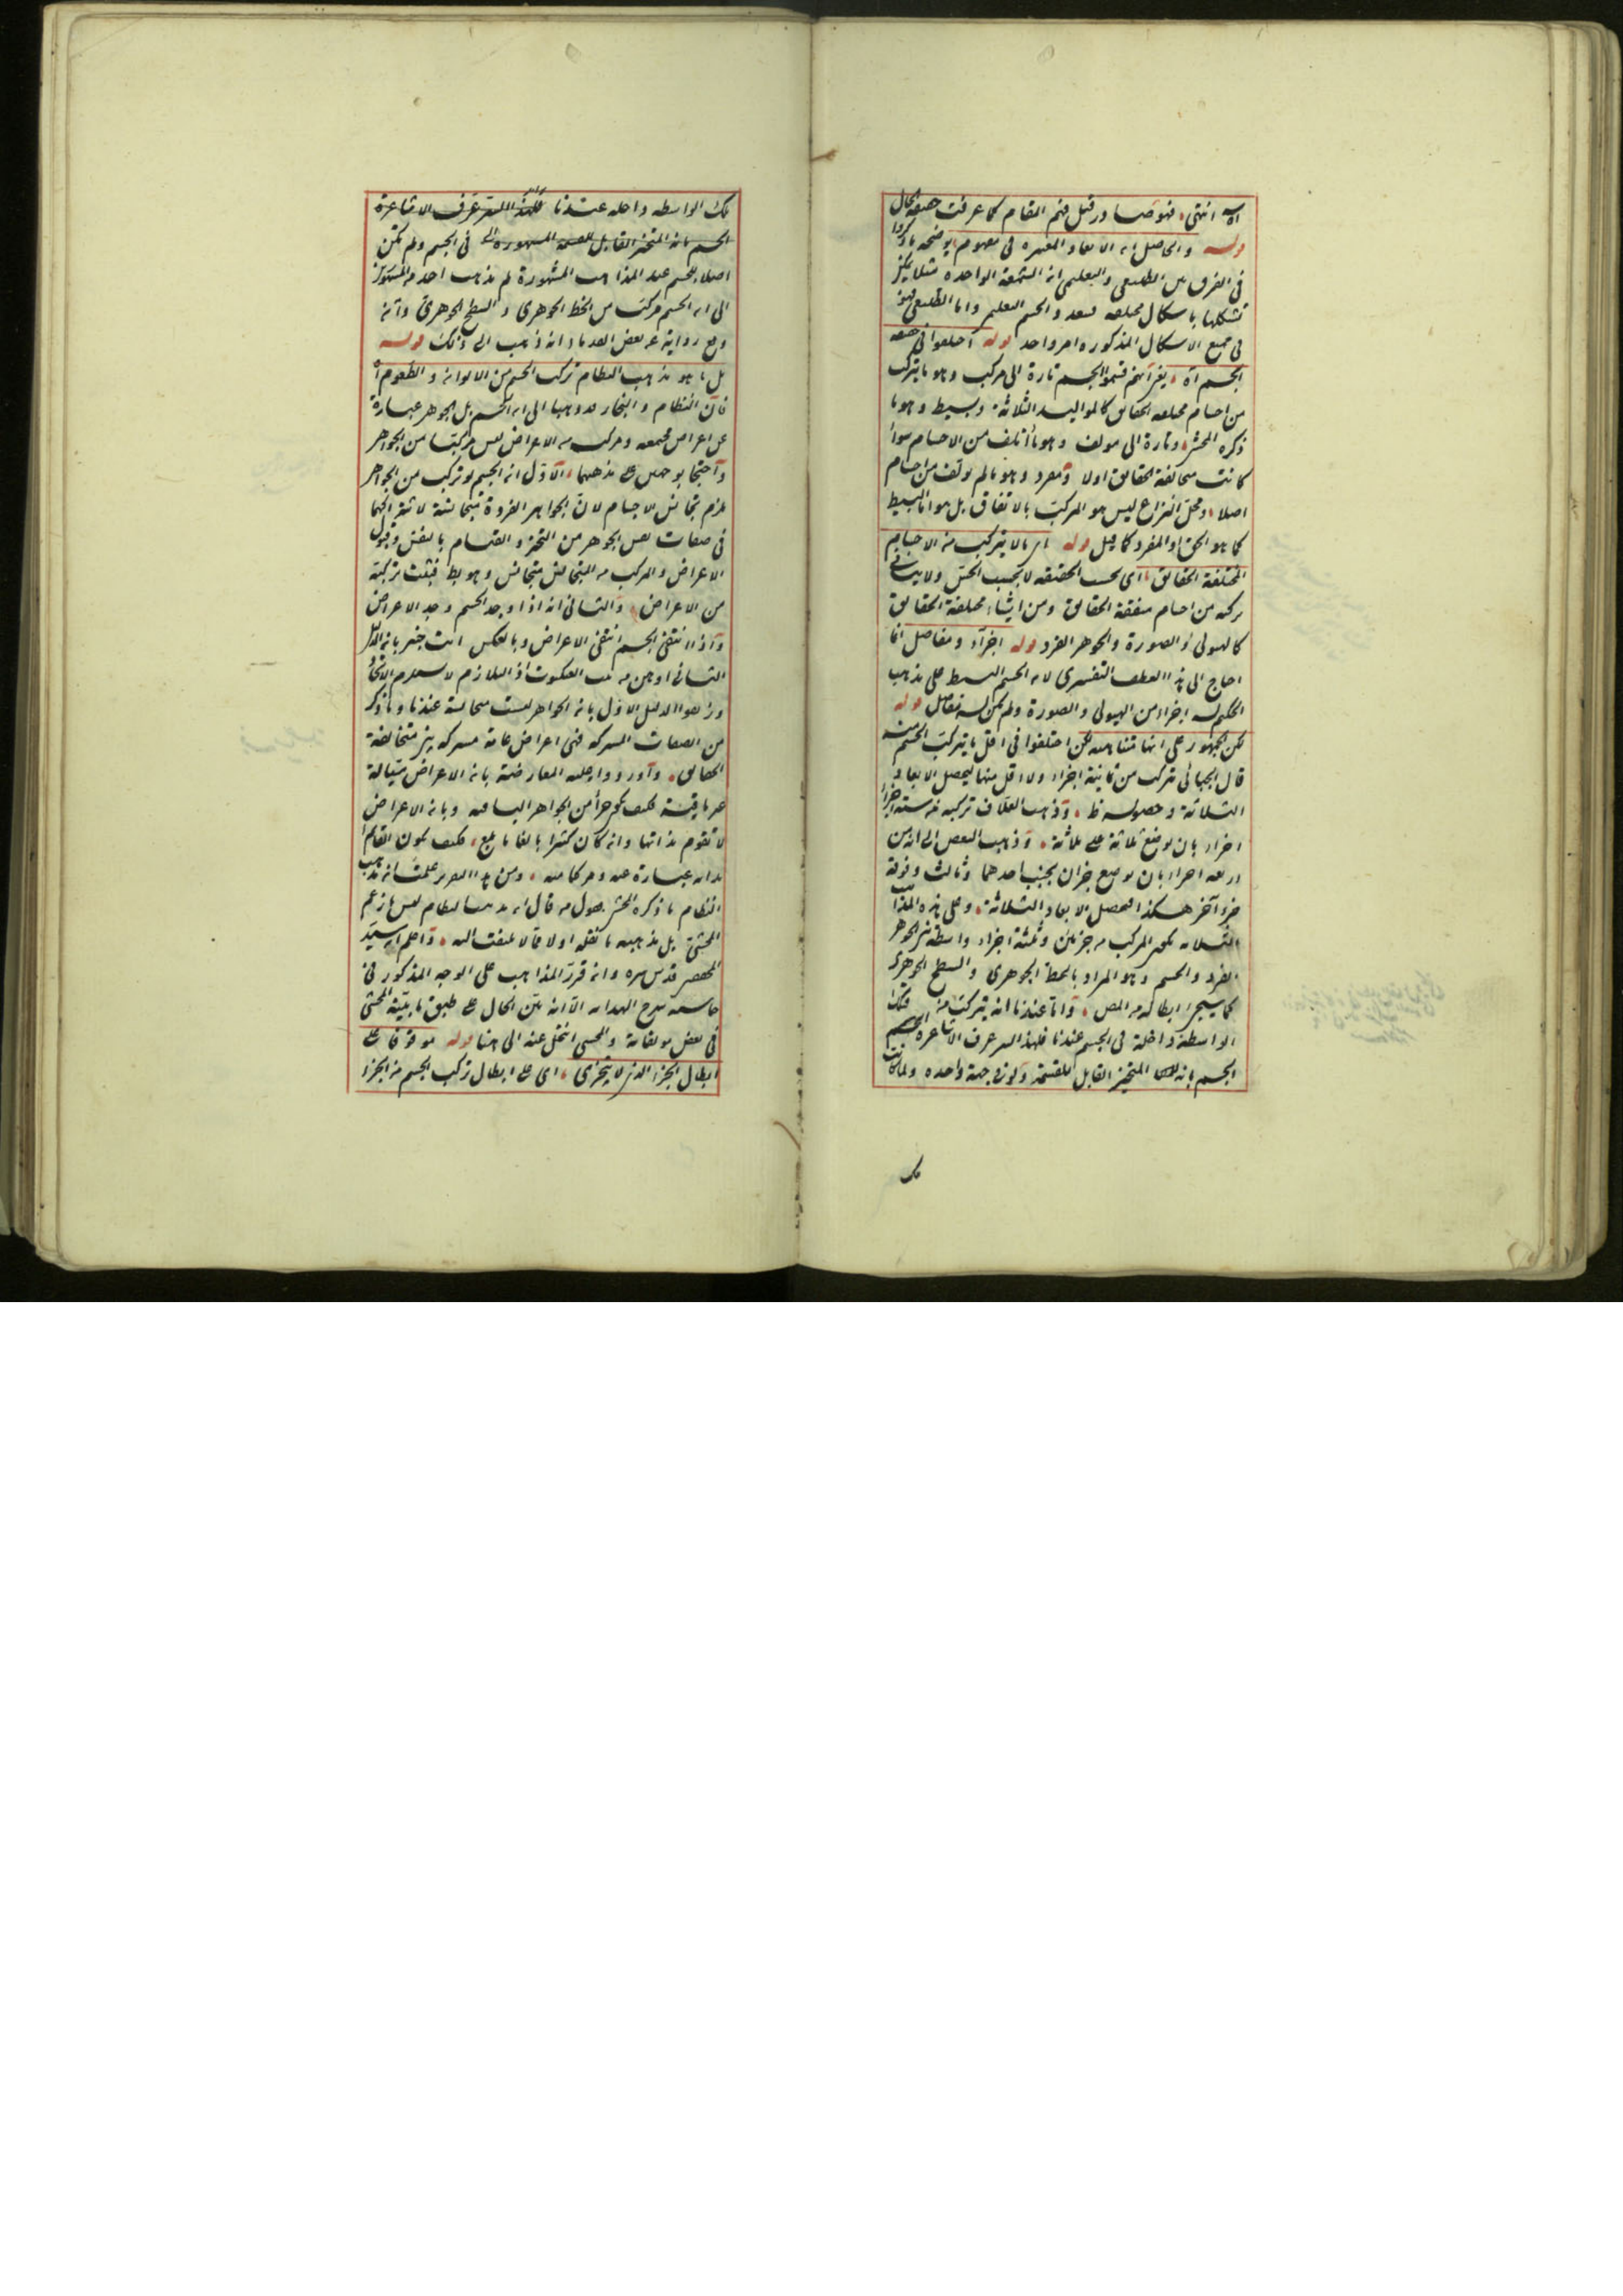 آه انتهى فهو صادر قبل فهم المقام كما عرفت حقيقة الحال
قوله والحاصل ان الابعاد المعتبرة في مفهوم يوضحه ما ذكروا
في الفرق بين الطبيعي والتعليمي ان الشمعة الواحدة مثلا يمكن
تشكلها باشكال مختلفة فيتعدد الجسم التعليمي واما الطبيعي فهو
في جميع الاشكال المذكورة امر واحد قوله اختلفوا في حقيقة
الجسم آه يعني انهم قسموا الجسم تارة الى مركب وهو ما يتركب
من اجسام مختلفة الحقايق كالمواليد الثلاثة وبسيط وهو ما
ذكره المحشي وتارة الى مولف وهو ما تألف من الاجسام سواء
كانت مختلفة الحقايق اولا ومفرد وهو ما لم يولف من اجسام
اصلا ومحل النزاع ليس هو المركب بالاتفاق بل هو اما البسيط
كما هو الحق او المفرد كما قيل قوله اي ما لا يتركب من الاجسام
المختلفة الحقايق اي بحسب الحقيقة لا بحسب الحس ولا ينافي
تركبه من اجسام متفقة الحقايق ومن اشياء مختلفة الحقايق
كالهيولى والصورة والجوهر الفرد قوله اجزاء ومفاصل انما
احتاج الى هذا العطف التفسيري لان الجسم البسيط على مذهب
الحكيم له اجزاء من الهيولى والصورة ولم يكن له مفاصل قوله
لكن الجمهور على انها متناهية لكن اختلفوا في اقل ما يتركب الجسم منه
قال الجبائي يتركب من ثمانية اجزاء ولا اقل منها ليحصل الابعاد
الثلاثة وحصوله ظ وذهب العلاف تركبه من ستة اجزاء
اجزاء بان يوضع ثلاثة على ثلاثة وذهب البعض الى انه من
اربعة اجزاء بان يوضع جزءان بجنب احدهما وثالث وفوقه
جزء آخر هكذا ليحصل الابعاد الثلاثة وعلى هذه المذاهب
الثلاثة يكون المركب من جزئين وثلثة اجزاء واسطة بين الجوهر
الفرد والجسم وهو المراد بالخط الجوهري والسطح الجوهري
كما سيجئ ابطاله من المص واما عندنا انه يتركب منه فتلك
الواسطة داخلة في الجسم عندنا فلهذا السر عرف الاشاعرة الجسم
الجسم بانه المتحيز القابل للقسمة ولو في جهة واحدة ولما كانت
تلك
تلك الواسطة داخلة عندنا فلهذا السر عرف الاشاعرة
الجسم بانه المتحيز القابل للقسمة المشهورة في الجسم ولم تكن
اصلا للجسم عند المذاهب المشهورة لم يذهب احد من المشهورين
الى ان الجسم مركب من الخط الجوهري والسطح الجوهري وانه
وقع رواية عن بعض القدماء انه ذهب الى ذلك قوله
بل ما هو مذهب النظام تركب الجسم من الالوان والطعوم آه
فان النظام والنجار ذهبا الى ان الجسم بل الجوهر عبارة
عن اعراض مجتمعة ومركب من الاعراض ليس مركبا من الجواهر
واحتجا بوجهين على مذهبهما الاول ان الجسم لو تركب من الجواهر
يلزم تجانس الاجسام لان الجواهر الفردة متجانسة لاشتراكهما
في صفات نفس الجوهر من التحيز والقيام بالنفس وقبول
الاعراض والمركب من المتجانس متجانس وهو بط فثبت تركبه
من الاعراض والثاني انه اذا وجد الجسم وجد الاعراض
واذا انتفى الجسم انتفى الاعراض وبالعكس انت خبير بان الدليل
الثاني اوهن من بيت العنكبوت اذ التلازم لا يستلزم الاتحاد
وزيفوا الدليل الاول بان الجواهر ليست متجانسة عندنا وما ذكر
من الصفات المشتركة فهي اعراض عامة مشتركة بين متخالفة
الحقايق واوردوا عليه المعارضة بان الاعراض متبدلة
غير باقية فكيف يكون جزأ من الجواهر الباقية وبان الاعراض
لا تقوم بذاتها وان كان كثيرا بالغا ما بلغ فكيف يكون القائم
بذاته عبارة عنه ومركبا منه ومن هذا التقرير علمت انه مذهب
النظام ما ذكره المحشي بقول من قال ان مذهب النظام ليس ما زعم
المحشي بل مذهبه ما نقله اولا مما لا يلتفت اليه واعلم ان سيد
المحققين قدس سره وان قرر المذاهب على الوجه المذكور في
حاشية شرح الهداية الا انه بين الحال على طبق ما بينه المحشي
في بعض مولفاته والمحشي انتحل عنه الى هنا قوله موقوفا على
ابطال الجزء الذي لا يتجزى اي على ابطال تركب الجسم من الجزء